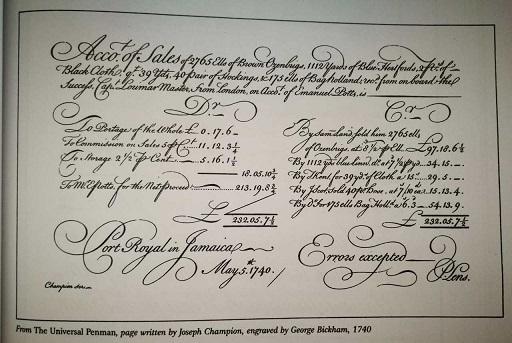 Acco.t of Sales of 2765 Ells of Brown Ozenbrigs, 1112 Yards of Blue Hertfords, 2 p.s of
Black Cloth, q.t 39 Yds, 40 pair of Stockings, & 175 ells of Bag Holland, rec.d from on board the
Success, Cap. Loumar Master, from London, on Acco.t of Emanuel Potts, is
Dr.
To Portage of the whole £ 0.17.6
To Commission on Sales 5 p C.t 11.12.3 1/4
To Storage 2 1/2 p Cent 5.16.1 1/2
18.05.10 3/4
To M.r E Potts, for the Nett proceed 213.19.8 3/4
£ 232.05.7 1/2
C.r
By Sam Land sold him 2765 ells
of Ozenbrigs, at 8 1/2 p Ell £ 97.18.6 1/2
By 1112 y.ds blue Linnd. d.o at 7 1/2 p yd 34.15.
By Kent for 39 yd.s of Cloth a 15.s 29.5.
By Scot, sold 40 p.r Hose, at 7/10 15.13.4
By D.o For 175 ells Bag Holl.d a 6.3 54.13.9
£ 232.05.7 1/2
Port Royal in Jamaica
May 5.th 1740.
Errors excepted
P Lens.
Champion Scr.
From The Universal Penman, page written by Joseph Champion, engraved by George Bickham, 1740